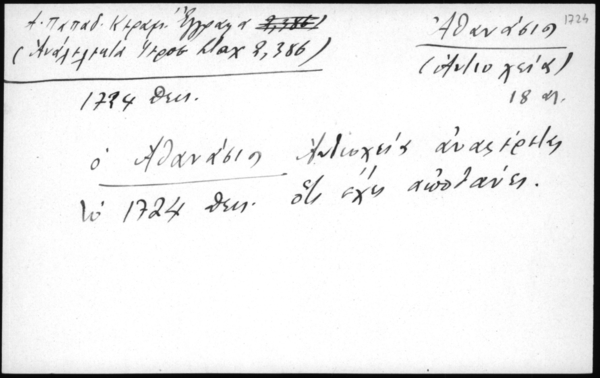 Α. Παπαδ. Κεραμ. Ἔγγραφα 2,386)
(Ἀνάλεκτα Ἱεροσ. Σταχ 2,386)
Ἀθανάσιος
1724
(Ἀντιοχεία)
18 αι.
1724 Δεκ.
ὁ Ἀθανάσιος Ἀντιοχείας ἀναφέρεται
τὸ 1724 Δεκ. ὅτι ἔχει ἀποθάνει.